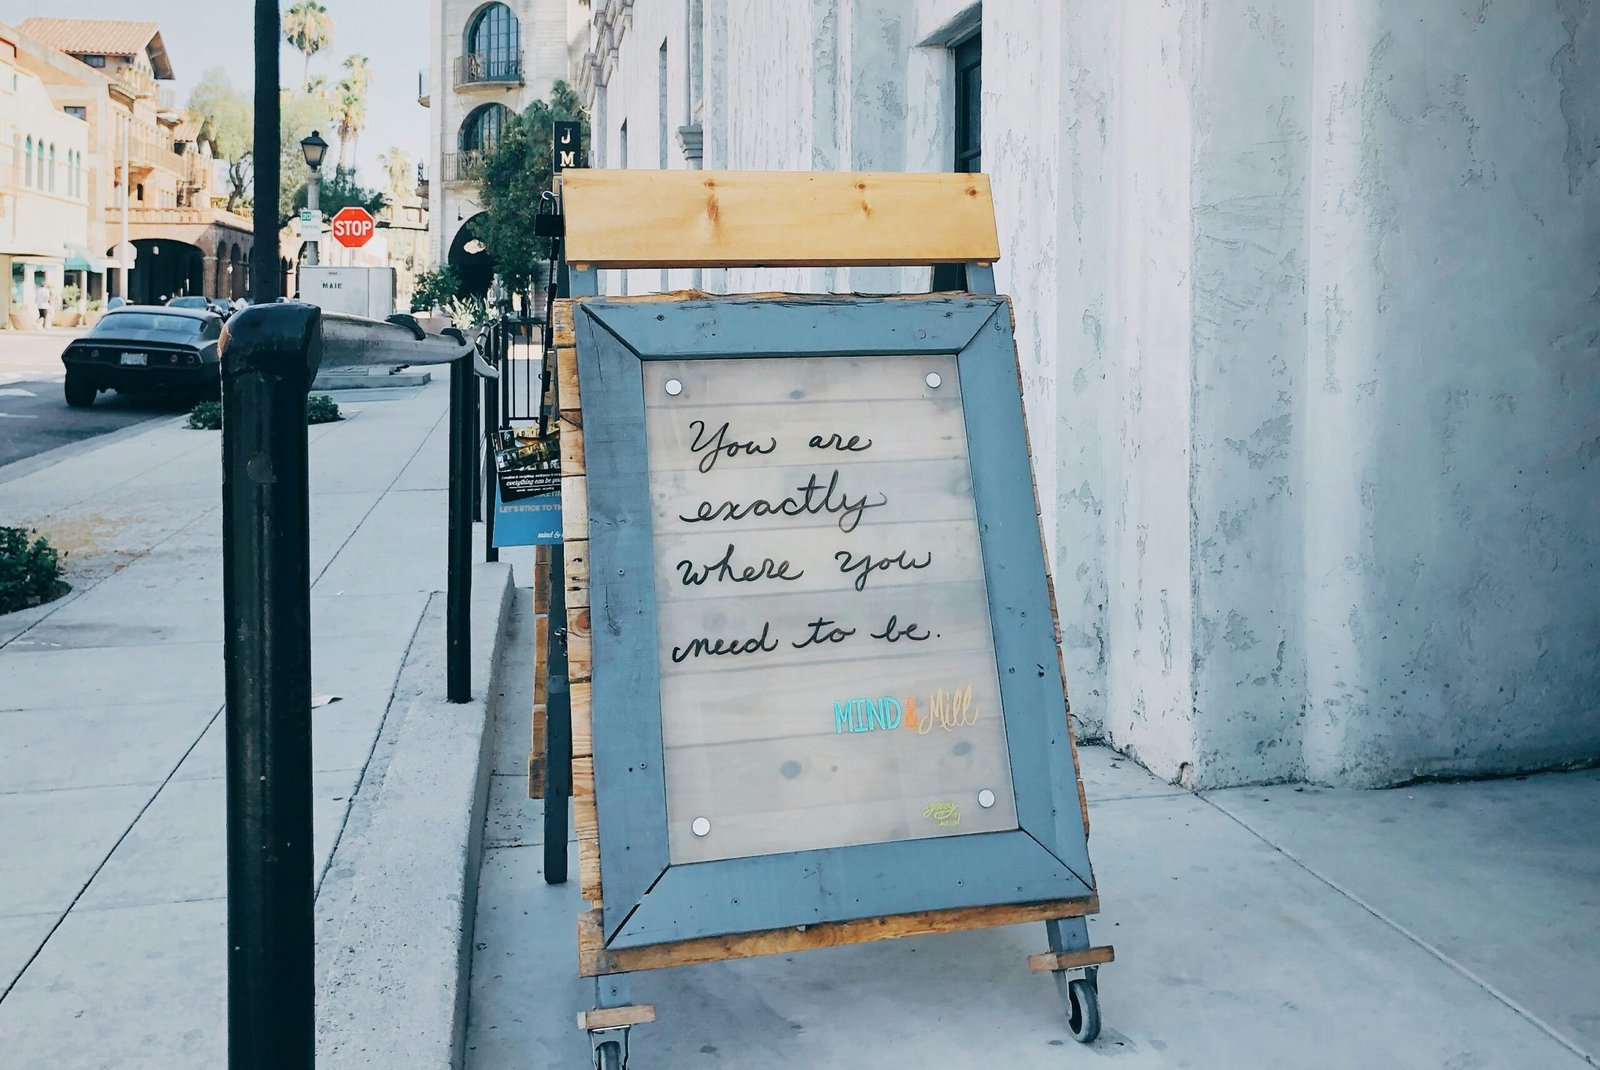 J
M
STOP
MAIN
You are
exactly
where you
need to be.
MIND & Mill
everything can be you
LET'S STICK TO TH
mind &